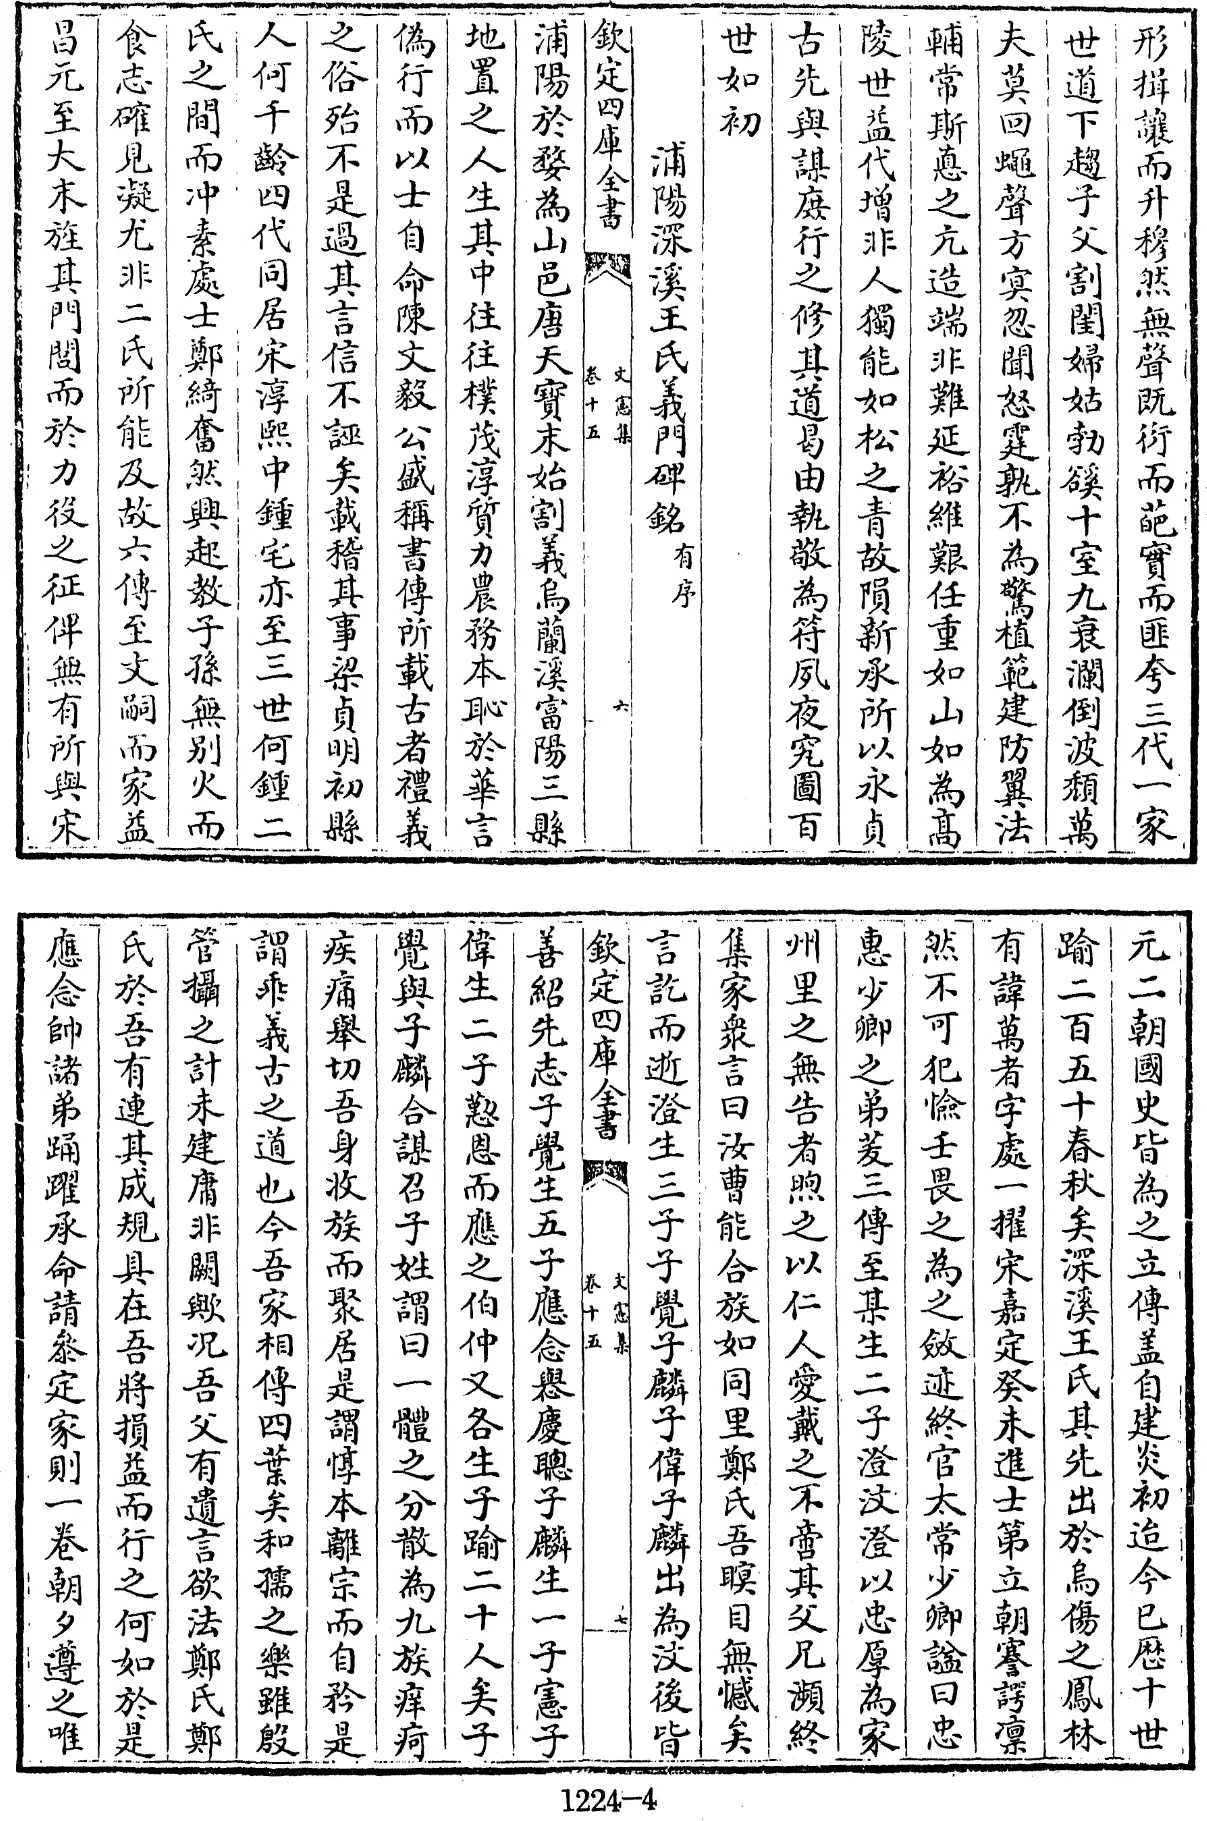 形揖讓而升穆然無聲既衎而葩實而匪夸三代一家
世道下趨子父割閨婦姑勃谿十室九衰瀾倒波頽萬
夫莫回蠅聲方寘忽聞怒霆孰不為驚植範建防翼法
輔常斯悳之亢造端非難延裕維艱任重如山如為髙
陵世益代增非人獨能如松之青故隕新承所以永貞
古先與謀庻行之修其道曷由執敬為符夙夜究圖百
世如初
浦陽深溪王氏義門碑銘有序
欽定四庫全書
文憲集
卷十五
六
浦陽於婺為山邑唐天寳末始割義烏蘭溪富陽三縣
地置之人生其中往往樸茂淳質力農務本恥於華言
偽行而以士自命陳文毅公盛稱書傳所載古者禮義
之俗殆不是過其言信不誣矣載稽其事梁貞明初縣
人何千齡四代同居宋淳熙中鍾宅亦至三世何鍾二
氏之間而冲素處士鄭綺奮然興起教子孫無别火而
食志確見凝尤非二氏所能及故六傳至文嗣而家益
昌元至大末旌其門閭而於力役之征俾無有所與宋
元二朝國史皆為之立傳盖自建炎初迨今已歴十世
踰二百五十春秋矣深溪王氏其先出於烏傷之鳳林
有諱萬者字處一擢宋嘉定癸未進士第立朝謇諤凛
然不可犯憸壬畏之為之斂迹終官太常少卿諡曰忠
惠少卿之弟芰三傳至某生二子澄汶澄以忠厚為家
州里之無告者煦之以仁人愛戴之不啻其父兄瀕終
集家衆言曰汝曹能合族如同里鄭氏吾瞑目無憾矣
言訖而逝澄生三子子覺子麟子偉子麟出為汶後皆
欽定四庫全書
文憲集
卷十五
七
善紹先志子覺生五子應念懋慶聰子麟生一子憲子
偉生二子懃恩而應之伯仲又各生子踰二十人矣子
覺與子麟合謀召子姓謂曰一體之分散為九族痒疴
疾痛舉切吾身收族而聚居是謂惇本離宗而自矜是
謂乖義古之道也今吾家相傳四葉矣和孺之樂雖殷
管攝之計未建庸非闕歟况吾父有遺言欲法鄭氏鄭
氏於吾有連其成規具在吾將損益而行之何如於是
應念帥諸弟踊躍承命請叅定家則一卷朝夕遵之唯
1224-4